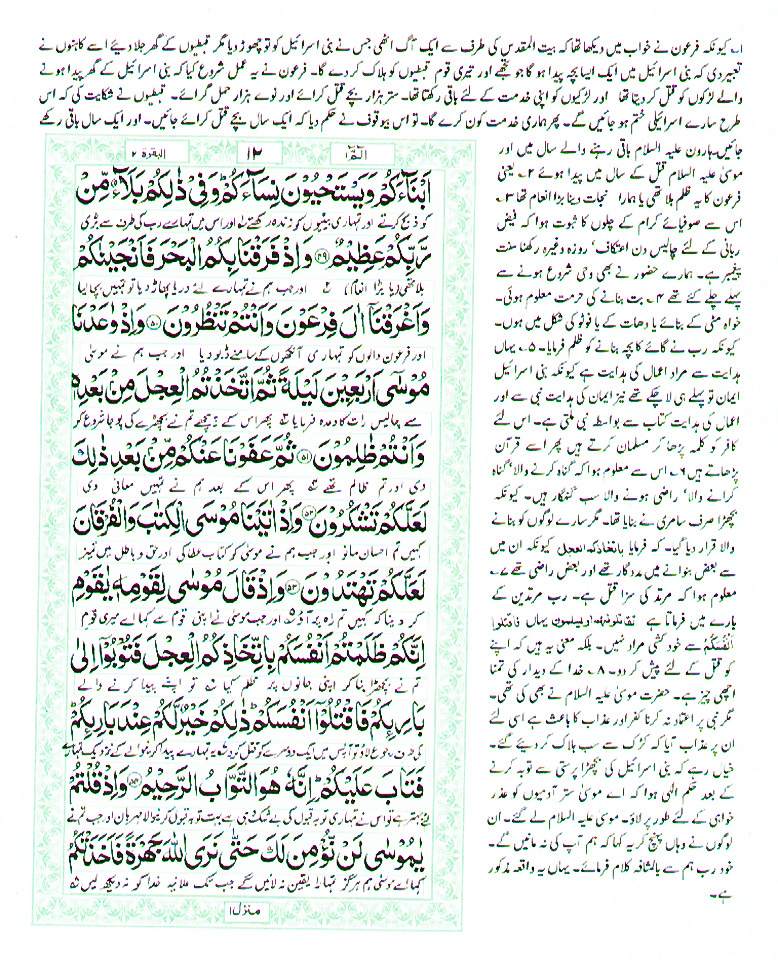 ۱۔ کیونکہ فرعون نے خواب میں دیکھا تھا کہ بیت المقدس کی طرف سے ایک آگ اٹھی جس نے بنی اسرائیل کو تو چھوڑ دیا مگر قبطیوں کے گھر جلا دیئے اسے کاہنوں نے
تعبیر دی کہ بنی اسرائیل میں ایک ایسا بچہ پیدا ہو گا جو تجھے اور تیری قوم قبطیوں کو ہلاک کر دے گا۔ فرعون نے یہ عمل شروع کیا کہ بنی اسرائیل کے گھر پیدا ہونے
والے لڑکوں کو قتل کر دیتا تھا اور لڑکیوں کو اپنی خدمت کے لئے باقی رکھتا تھا۔ ستر ہزار بچے قتل کرائے اور نوے ہزار حمل گرائے۔ قبطیوں نے شکایت کی کہ اس
طرح سارے اسرائیلی ختم ہو جائیں گے۔ پھر ہماری خدمت کون کرے گا۔ تو اس بیوقوف نے حکم دیا کہ ایک سال بچے قتل کرائے جائیں۔ اور ایک سال باقی رکھے
جائیں۔ ہارون علیہ السلام باقی رہنے والے سال میں اور
موسیٰ علیہ السلام قتل کے سال میں پیدا ہوئے ۲۔ یعنی
فرعون کا یہ ظلم بلا تھی یا ہمارا نجات دینا بڑا انعام تھا ۳۔
اس سے صوفیائے کرام کے چلوں کا ثبوت ہوا کہ فیض
ربانی کے لئے چالیس دن اعتکاف' روزہ وغیرہ رکھنا سنت
پیغمبر ہے۔ ہمارے حضور نے بھی وحی شروع ہونے سے
پہلے چلے کئے تھے ۴۔ بت بنانے کی حرمت معلوم ہوئی۔
خواہ مٹی کے بنائے یا دھات کے یا فوٹو کی شکل میں ہوں۔
کیونکہ رب نے گائے کا بچہ بنانے کو ظلم فرمایا۔ ۵۔ یہاں
ہدایت سے مراد اعمال کی ہدایت ہے کیونکہ بنی اسرائیل
ایمان تو پہلے ہی لا چکے تھے نیز ایمان کی ہدایت نبی سے اور
اعمال کی ہدایت کتاب سے بواسطہ نبی ملتی ہے۔ اس لئے
کافر کو کلمہ پڑھا کر مسلمان کرتے ہیں پھر اسے قرآن
پڑھاتے ہیں ۶۔ اس سے معلوم ہوا کہ 'گناہ کرنے والا' گناہ
کرانے والا' راضی ہونے والا سب گنہگار ہیں۔ کیونکہ
بچھڑا صرف سامری نے بنایا تھا۔ مگر سارے لوگوں کو بنانے
والا قرار دیا گیا۔ کہ فرمایا باتخاذکم العجل کیونکہ ان میں
سے بعض بنوانے میں مددگار تھے اور بعض راضی تھے ۷۔
معلوم ہوا کہ مرتد کی سزا قتل ہے۔ رب مرتدین کے
بارے میں فرماتا ہے تقاتلونھم او یسلمون یہاں فاقتلوا
اَنْفُسَکُمْ سے خود کشی مراد نہیں۔ بلکہ معنی یہ ہیں کہ اپنے
کو قتل کے لئے پیش کر دو۔ ۸۔ خدا کے دیدار کی تمنا
اچھی چیز ہے۔ حضرت موسیٰ علیہ السلام نے بھی کی تھی۔
مگر نبی پر اعتماد نہ کرنا کفر اور عذاب کا باعث ہے اسی لئے
ان پر عذاب آیا کہ کڑک سے سب ہلاک کر دیئے گئے۔
خیال رہے کہ بنی اسرائیل کی بچھڑا پرستی سے توبہ کرنے
کے بعد حکم الٰہی ہوا کہ اے موسیٰ ستر آدمیوں کو عذر
خواہی کے لئے طور پر لاؤ۔ موسیٰ علیہ السلام لے گئے۔ ان
لوگوں نے وہاں پہنچ کر یہ کہا کہ ہم آپ کی نہ مانیں گے۔
خود رب ہم سے بالمشافہ کلام فرمائے۔ یہاں یہ واقعہ مذکور
ہے۔
البقرۃ ۲ ۱۲ الٓمّٓ ۱
اَبْنَآءَكُمْ وَيَسْتَحْيُوْنَ نِسَآءَكُمْ وَفِيْ ذٰلِكُمْ بَلَآءٌ مِّنْ
کو ذبح کرتے اور تمہاری بیٹیوں کو زندہ رکھتے اور اس میں تمہارے رب کی طرف سے بڑی
رَّبِّكُمْ عَظِيْمٌ ﴿۴۹﴾ وَاِذْ فَرَقْنَا بِكُمُ الْبَحْرَ فَاَنْجَيْنٰكُمْ
بلا تھی (یا بڑا انعام) اور جب ہم نے تمہارے لئے دریا پھاڑ دیا تو تمہیں بچا لیا
وَاَغْرَقْنَآ اٰلَ فِرْعَوْنَ وَاَنْتُمْ تَنْظُرُوْنَ ﴿۵۰﴾ وَاِذْ وٰعَدْنَا
اور فرعون والوں کو تمہاری آنکھوں کے سامنے ڈبو دیا اور جب ہم نے موسیٰ
مُوْسٰٓى اَرْبَعِيْنَ لَيْلَةً ثُمَّ اتَّخَذْتُمُ الْعِجْلَ مِنْۢ بَعْدِهٖ
سے چالیس رات کا وعدہ فرمایا پھر اس کے پیچھے تم نے بچھڑے کی پوجا شروع کر
وَاَنْتُمْ ظٰلِمُوْنَ ﴿۵۱﴾ ثُمَّ عَفَوْنَا عَنْكُمْ مِّنْۢ بَعْدِ ذٰلِكَ
دی اور تم ظالم تھے پھر اس کے بعد ہم نے تمہیں معافی دی
لَعَلَّكُمْ تَشْكُرُوْنَ ﴿۵۲﴾ وَاِذْ اٰتَيْنَا مُوْسَى الْكِتٰبَ وَالْفُرْقَانَ
کہیں تم احسان مانو اور جب ہم نے موسیٰ کو کتاب عطا کی اور حق و باطل میں تمیز
لَعَلَّكُمْ تَهْتَدُوْنَ ﴿۵۳﴾ وَاِذْ قَالَ مُوْسٰى لِقَوْمِهٖ يٰقَوْمِ
کر دینا کہ کہیں تم راہ پر آؤ اور جب موسیٰ نے اپنی قوم سے کہا اے میری قوم
اِنَّكُمْ ظَلَمْتُمْ اَنْفُسَكُمْ بِاتِّخَاذِكُمُ الْعِجْلَ فَتُوْبُوْٓا اِلٰى
تم نے بچھڑا بنا کر اپنی جانوں پر ظلم کیا تو اپنے پیدا کرنے والے
بَارِئِكُمْ فَاقْتُلُوْٓا اَنْفُسَكُمْ ذٰلِكُمْ خَيْرٌ لَّكُمْ عِنْدَ بَارِئِكُمْ
کی طرف رجوع لاؤ تو آپس میں ایک دوسرے کو قتل کرو یہ تمہارے پیدا کرنے والے کے نزدیک تمہارے
فَتَابَ عَلَيْكُمْ اِنَّهٗ هُوَ التَّوَّابُ الرَّحِيْمُ ﴿۵۴﴾ وَاِذْ قُلْتُمْ
لئے بہتر ہے تو اس نے تمہاری توبہ قبول کی بے شک وہی ہے بہت توبہ قبول کرنیوالا مہربان اور جب تم نے
يٰمُوْسٰى لَنْ نُّؤْمِنَ لَكَ حَتّٰى نَرَى اللّٰهَ جَهْرَةً فَاَخَذَتْكُمُ
کہا اے موسیٰ ہم ہرگز تمہارا یقین نہ لائیں گے جب تک علانیہ خدا کو نہ دیکھ لیں
منزل ۱